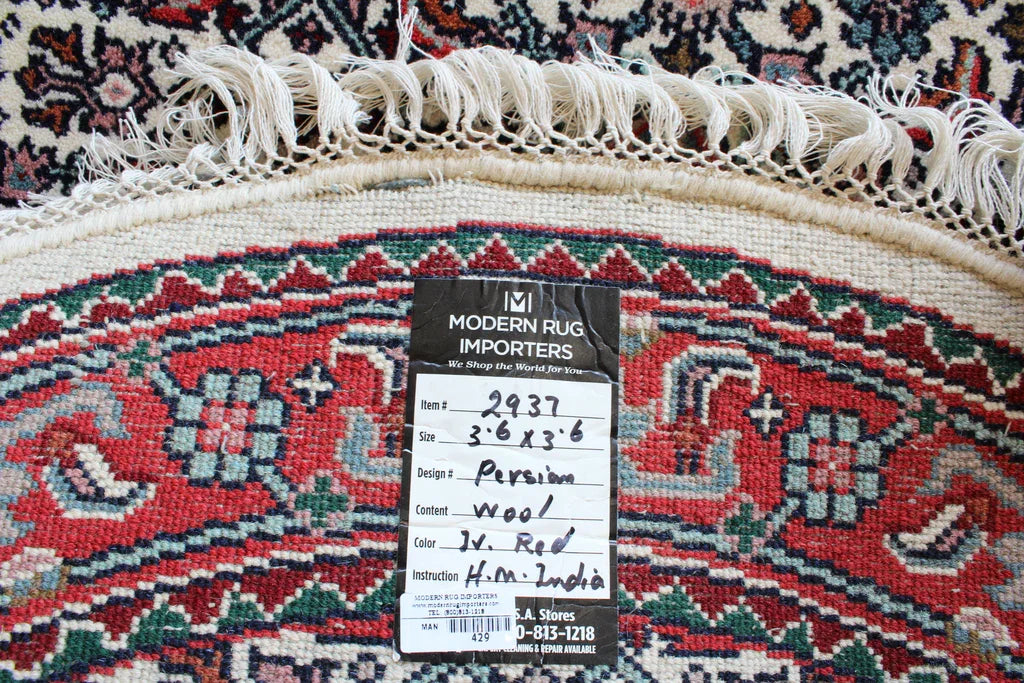 M
MODERN RUG
IMPORTERS
We Shop the World for You
Item # 2937
Size 3'6 x 3'6
Design # Persian
Content Wool
Color Iv. Red
Instruction H.M. India
MODERN RUG IMPORTERS
www.modernrugimporters.com
TEL: (800)813-1218
MAN
429
S.A. Stores
0-813-1218
CLEANING & REPAIR AVAILABLE